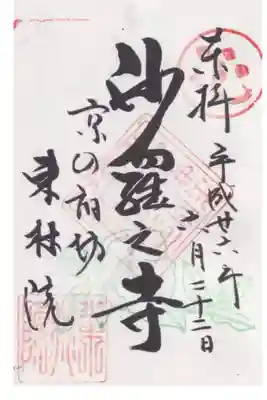 奉拝 平成廿六年
六月二十二日
沙羅之寺
京の
東林院